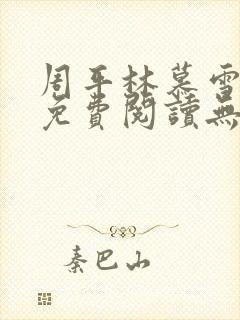 周平林慕雪
免費閱讀無
秦巴山